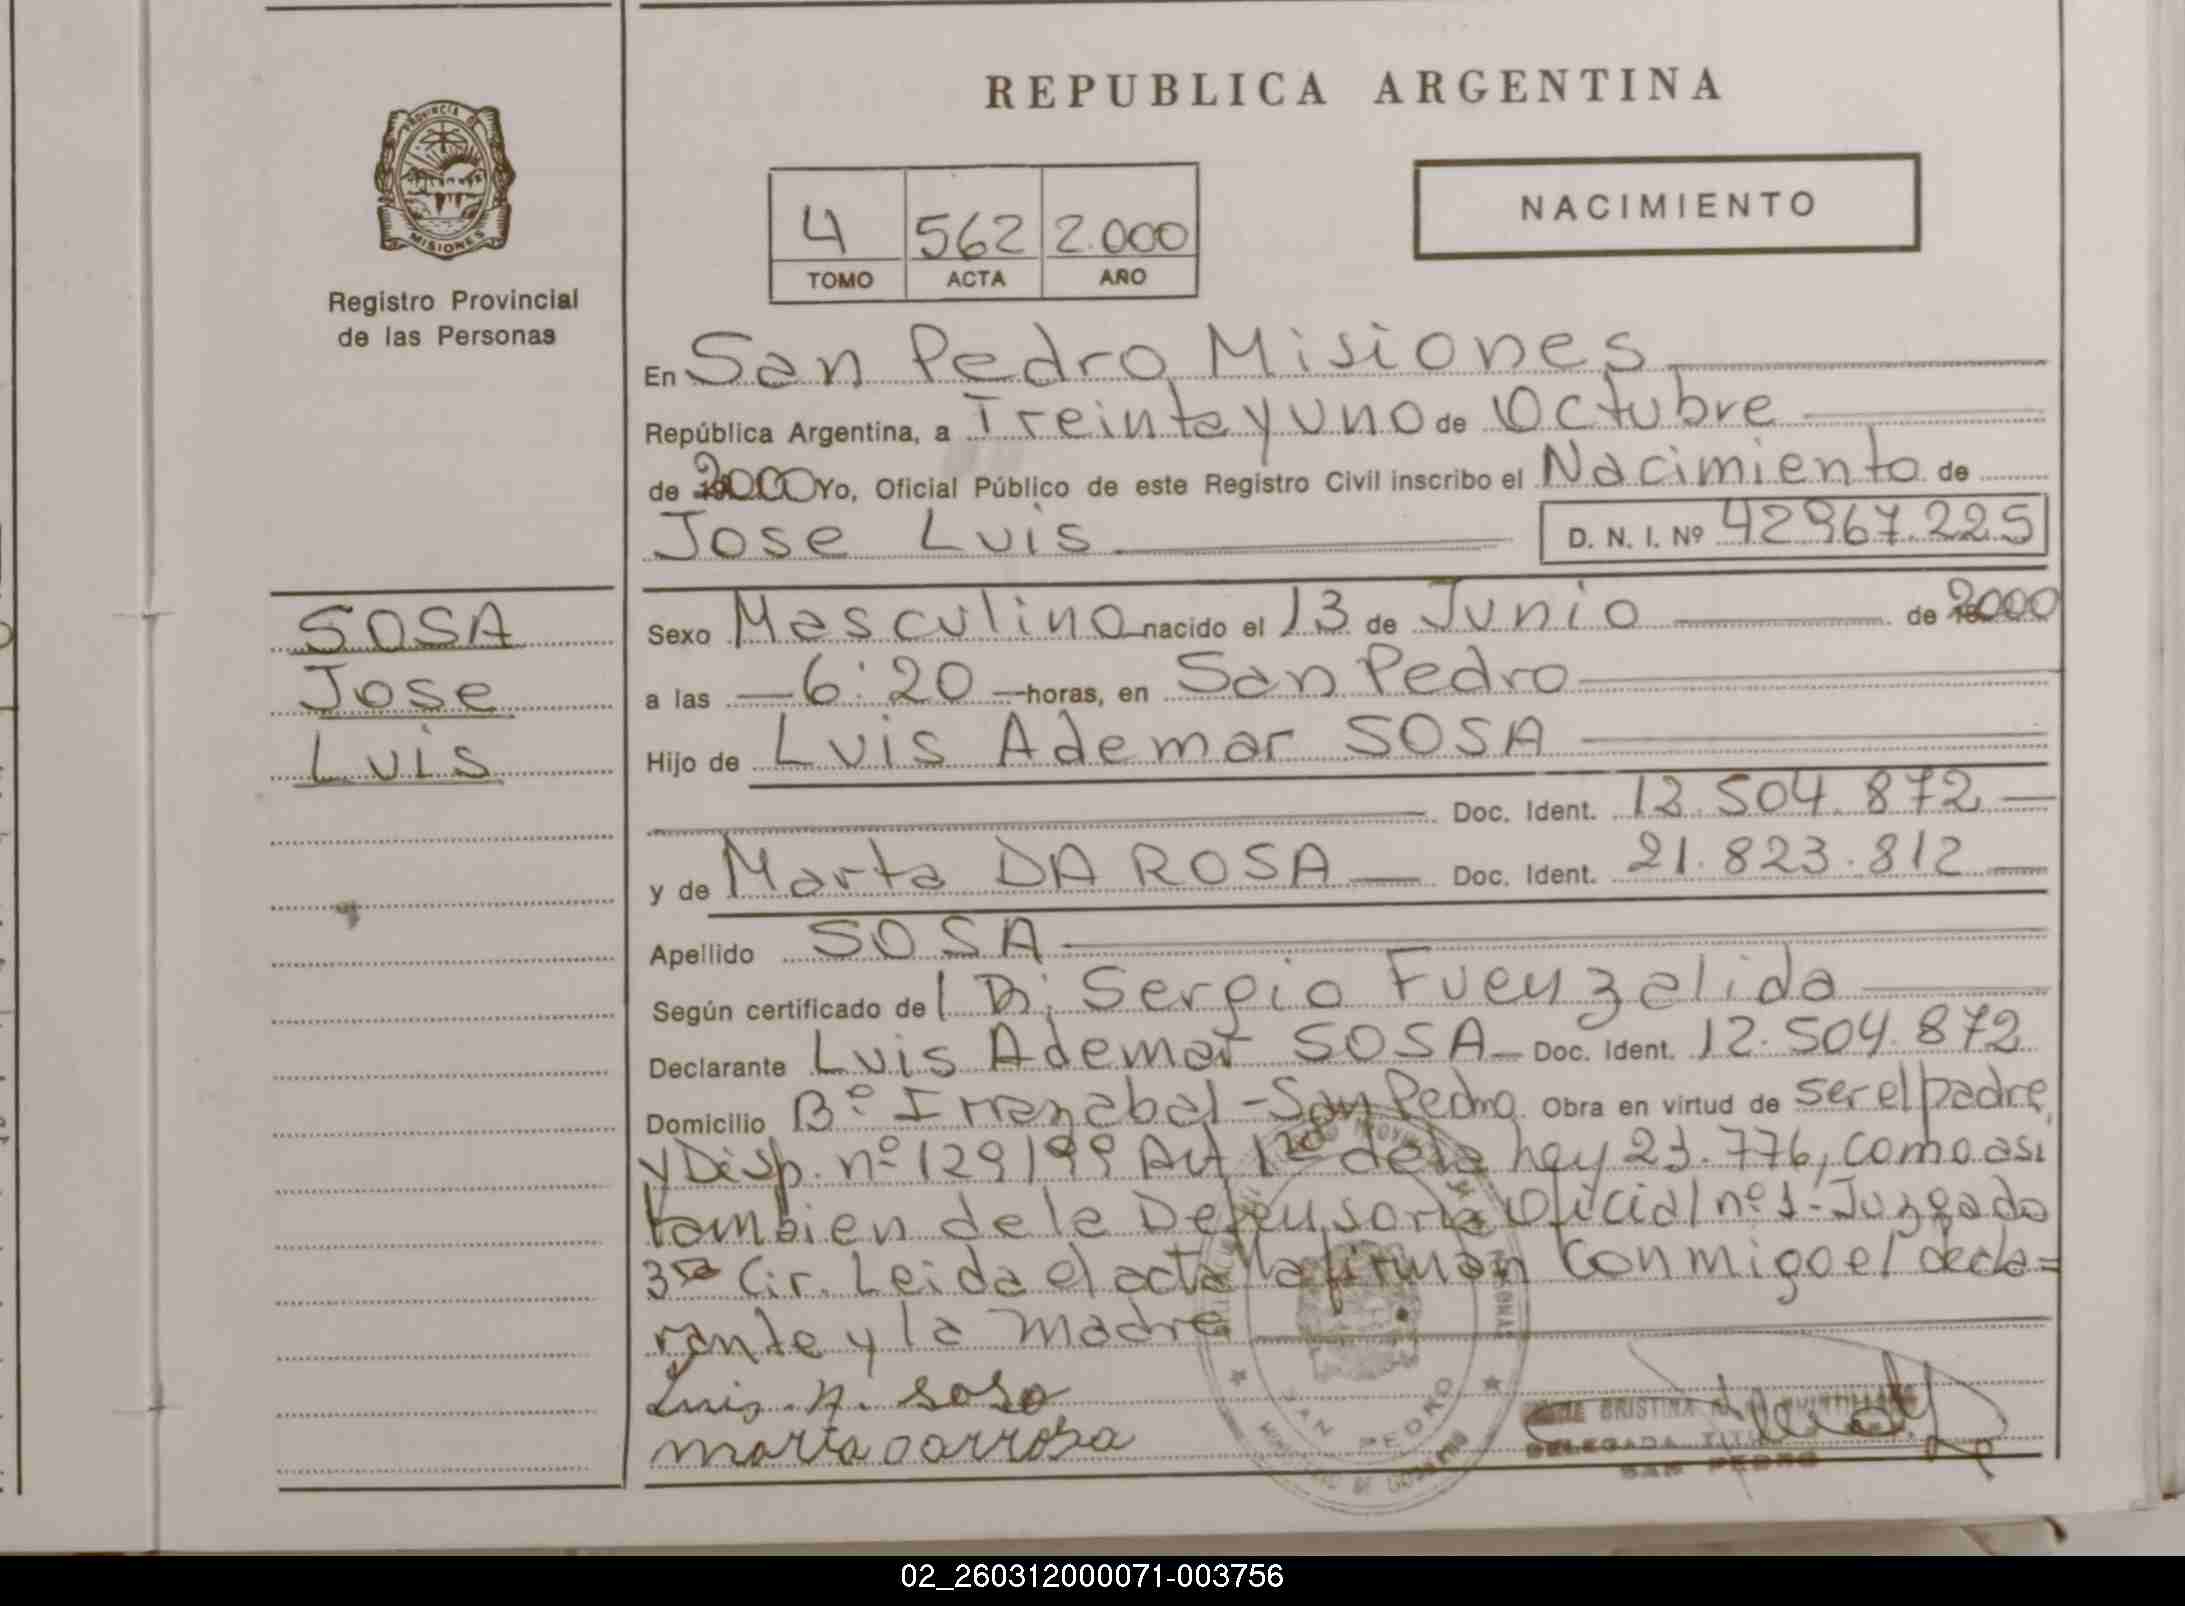 REPUBLICA ARGENTINA
PROVINCIA DE
MISIONES
Registro Provincial
de las Personas
4 562 2.000
TOMO ACTA AÑO
NACIMIENTO
En San Pedro Misiones
República Argentina, a Treinta y uno de Octubre
de 2000 Yo, Oficial Público de este Registro Civil inscribo el Nacimiento de
Jose Luis D. N. I. Nº 42967.225
SOSA
Jose
Luis
Sexo Masculino nacido el 13 de Junio de 2000
a las 6:20 horas, en San Pedro
Hijo de Luis Ademar SOSA
Doc. Ident. 12.504.872
y de Marta DA ROSA Doc. Ident. 21.823.812
Apellido SOSA
Según certificado del Dr. Sergio Fuenzalida
Declarante Luis Ademar SOSA Doc. Ident. 12.504.872
Domicilio Bº Irrazabal - San Pedro Obra en virtud de ser el padre
y Disp. nº 129/99 Art 1º de la hey 23.776, como asi
tambien de la Defensoria Oficial nº 1 - Juzgado
3ra Cir. Leida el acta la firman conmigo el decla=
rante y la madre
Luis. A. sosa
marta darrosa
SAN PEDRO
MINISTERIO DE GOBIERNO
CRISTINA
DELEGADA TITULAR
SAN PEDRO
02_260312000071-003756